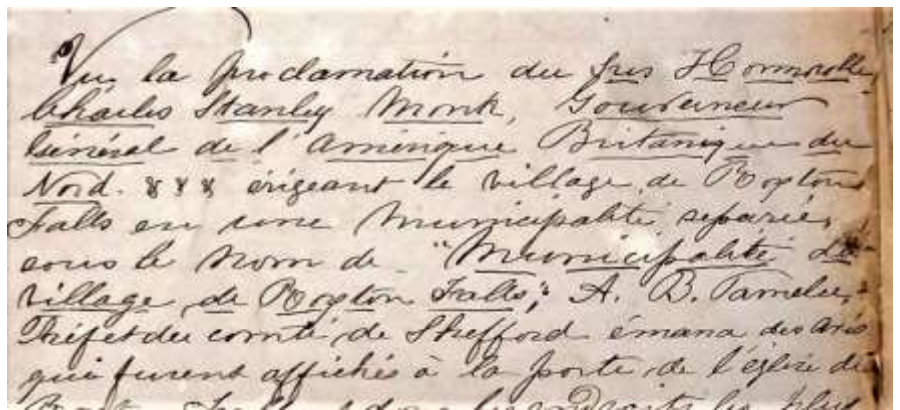 Vu la proclamation du Très Honorable
Charles Stanley Monk, Gouverneur
Général de l'Amérique Britanique du
Nord. érigeant le village de Roxton
Falls en une Municipalité separée,
sous le nom de "Municipalité du
village de Roxton Falls"; A. B. Parmelee,
Préfet du comté de Shefford émana des avis
qui furent affichés à la porte de l'église de
Roxton Falls les endroits les plus